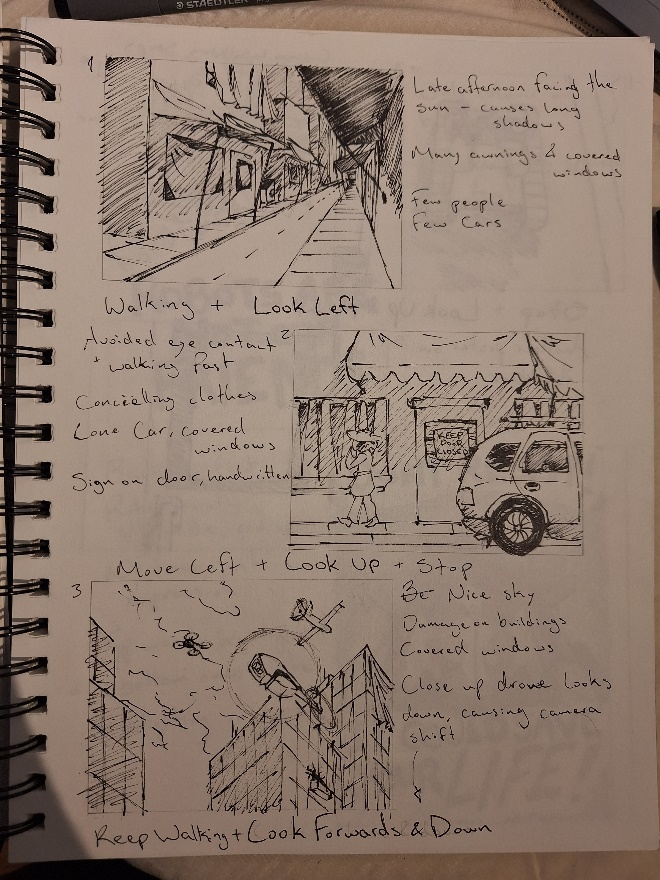 STAEDTLER
1
Late afternoon facing the
sun - causes long
shadows
Many awnings & covered
windows
Few people
Few Cars
Walking + Look Left
2
Avoided eye contact
+ walking fast
Concielling clothes
Lone Car, covered
windows
Sign on door, handwritten
KEEP
DOOR
CLOSED
Move Left + Look Up + Stop
3
Nice sky
Damage on buildings
Covered windows
Close up drone looks
down, causing camera
shift
Keep Walking + Look Forwards & Down